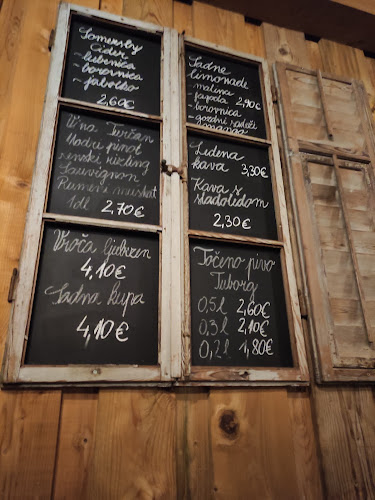 Somersby
Cider
- lubenica
- borovnica
- jabolko
2,60€
Vina Turčan
Modri pinot
renski rizling
Sauvignon
Rumeni muškat
1dl 2,70€
Vroča ljubezen
4,10€
Sadna kupa
4,10€
Sadne
limonade
- malina
- jagoda 2,90€
- borovnica
- gozdni sadeži
- mango
Ledena
kava 3,30€
Kava s
sladoledom
2,30€
Točeno pivo
Tuborg
0,5l 2,60€
0,3l 2,10€
0,2l 1,80€